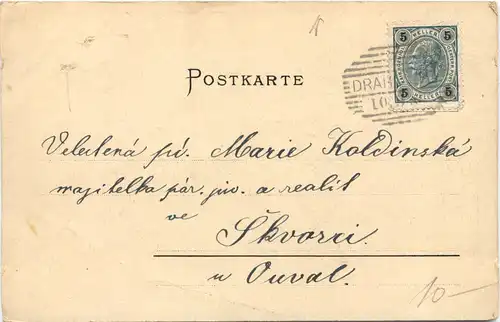 POSTKARTE
5 HELLER 5
5 HELLER 5
DRAH
10
Velectená pí. Marie Koldinská
majitelka pár. piv. a realit
ve
Škvorci.
u Ouval.
10-